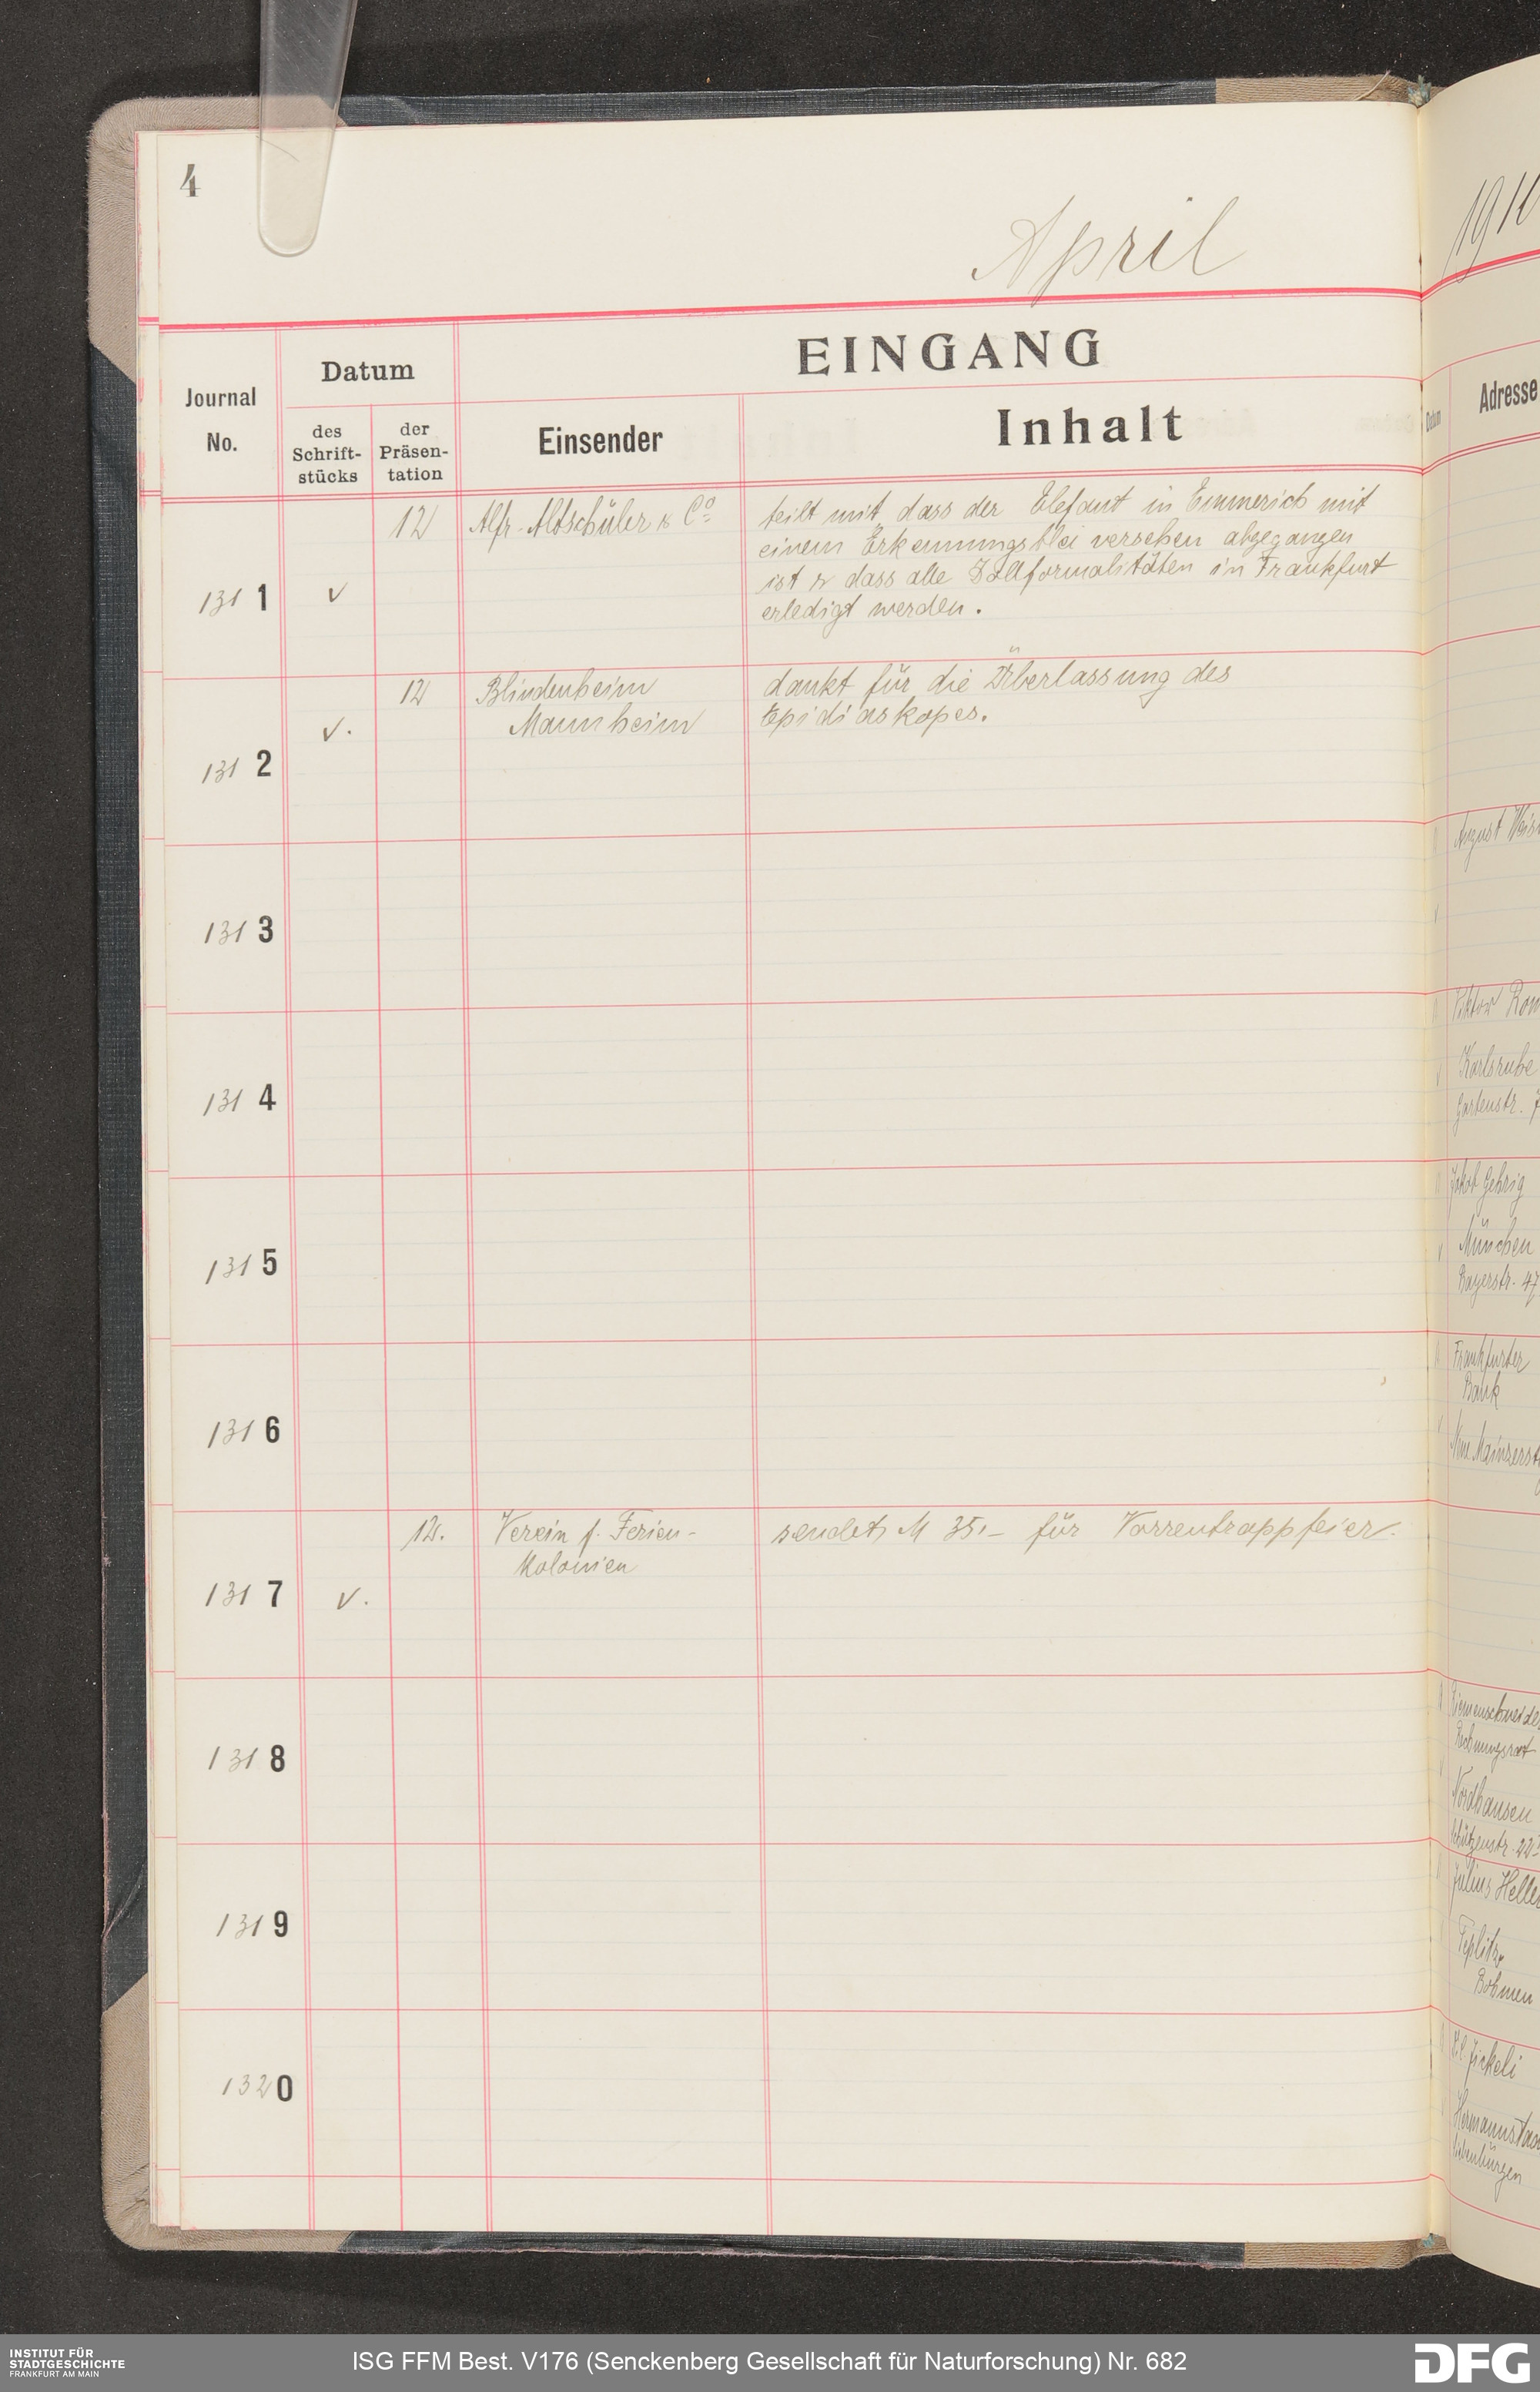 4
April
EINGANG
Journal
No.
Datum
des
Schrift-
stücks
der
Präsen-
tation
Einsender
Inhalt
1311
v
12
Alfr. Altschüler & Cº
teilt mit, dass der Elefant in Emmerich mit
einem Erkennungsblei versehen abgegangen
ist & dass alle Zollformalitäten in Frankfurt
erledigt werden.
1312
v.
12
Blindenheim
Mannheim
dankt für die Überlassung des
Epidiaskopes.
1313
1314
1315
1316
1317
v.
12.
Verein f. Ferien-
Kolonien
sendet M 35.- für Varrentrappfeier.
1318
1319
1320
Datum
Adresse
August
Karlsruhe
Gartenstr.
Jakob Gehrig
München
Bayerstr. 47
Frankfurter
Bank
Rechnungsrat
Nordhausen
Julius
Teplitz
Böhmen
Jickeli
INSTITUT FÜR
STADTGESCHICHTE
FRANKFURT AM MAIN
ISG FFM Best. V176 (Senckenberg Gesellschaft für Naturforschung) Nr. 682
DFG